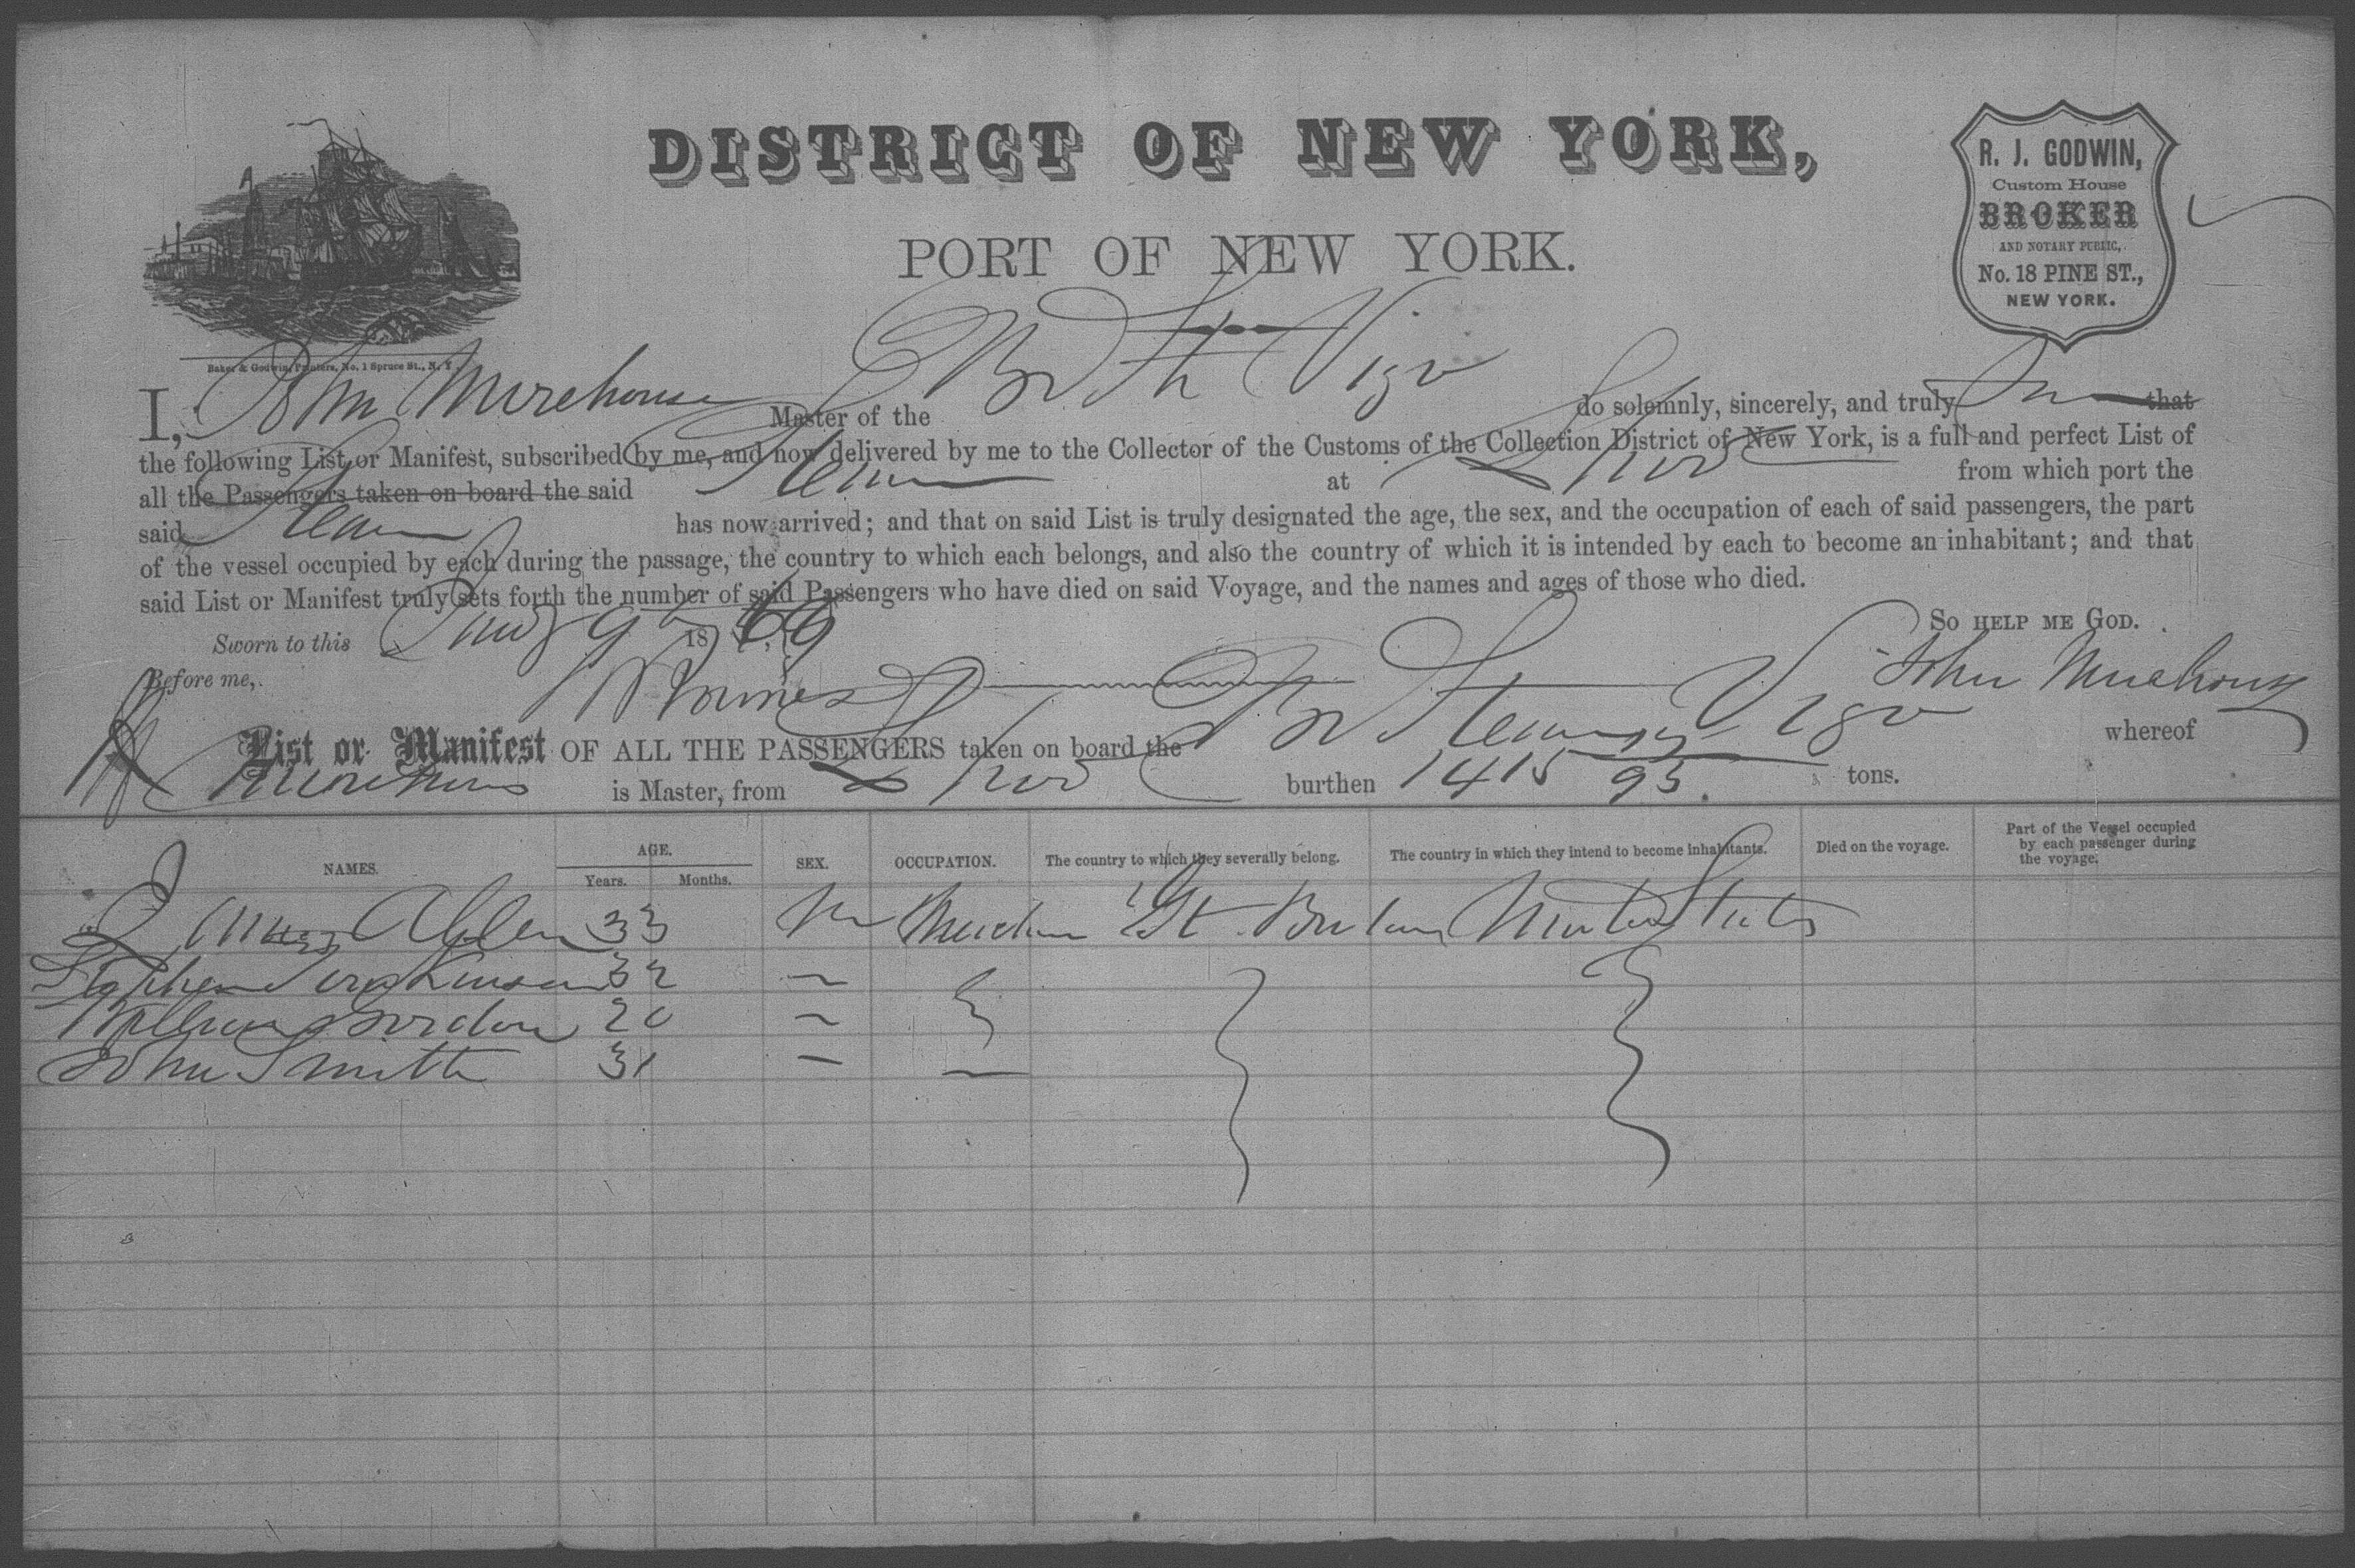 DISTRICT OF NEW YORK,
PORT OF NEW YORK.
R. J. GODWIN,
Custom House
BROKER
AND NOTARY PUBLIC,
No. 18 PINE ST.,
NEW YORK.
Baker & Godwin, Printers, No. 1 Spruce St., N. Y.
I, John Morehouse Master of the Br Str Vigo do solemnly, sincerely, and truly that
the following List or Manifest, subscribed by me, and now delivered by me to the Collector of the Customs of the Collection District of New York, is a full and perfect List of
all the Passengers taken on board the said Steamer at L'pool from which port the
said Steamer has now arrived; and that on said List is truly designated the age, the sex, and the occupation of each of said passengers, the part
of the vessel occupied by each during the passage, the country to which each belongs, and also the country of which it is intended by each to become an inhabitant; and that
said List or Manifest truly sets forth the number of said Passengers who have died on said Voyage, and the names and ages of those who died.
Sworn to this 9th 1869 So HELP ME GOD.
Before me, John Morehouse
List or Manifest OF ALL THE PASSENGERS taken on board the Br Steamer Vigo whereof
Morehouse is Master, from L'pool burthen 1415 95 tons.
NAMES. AGE. SEX. OCCUPATION. The country to which they severally belong. The country in which they intend to become inhabitants. Died on the voyage. Part of the Vessel occupied by each passenger during the voyage.
Years. Months.
James Allen 33 M Gt Britain United States
Stephen 32
William Gordon 20
John Smith 31